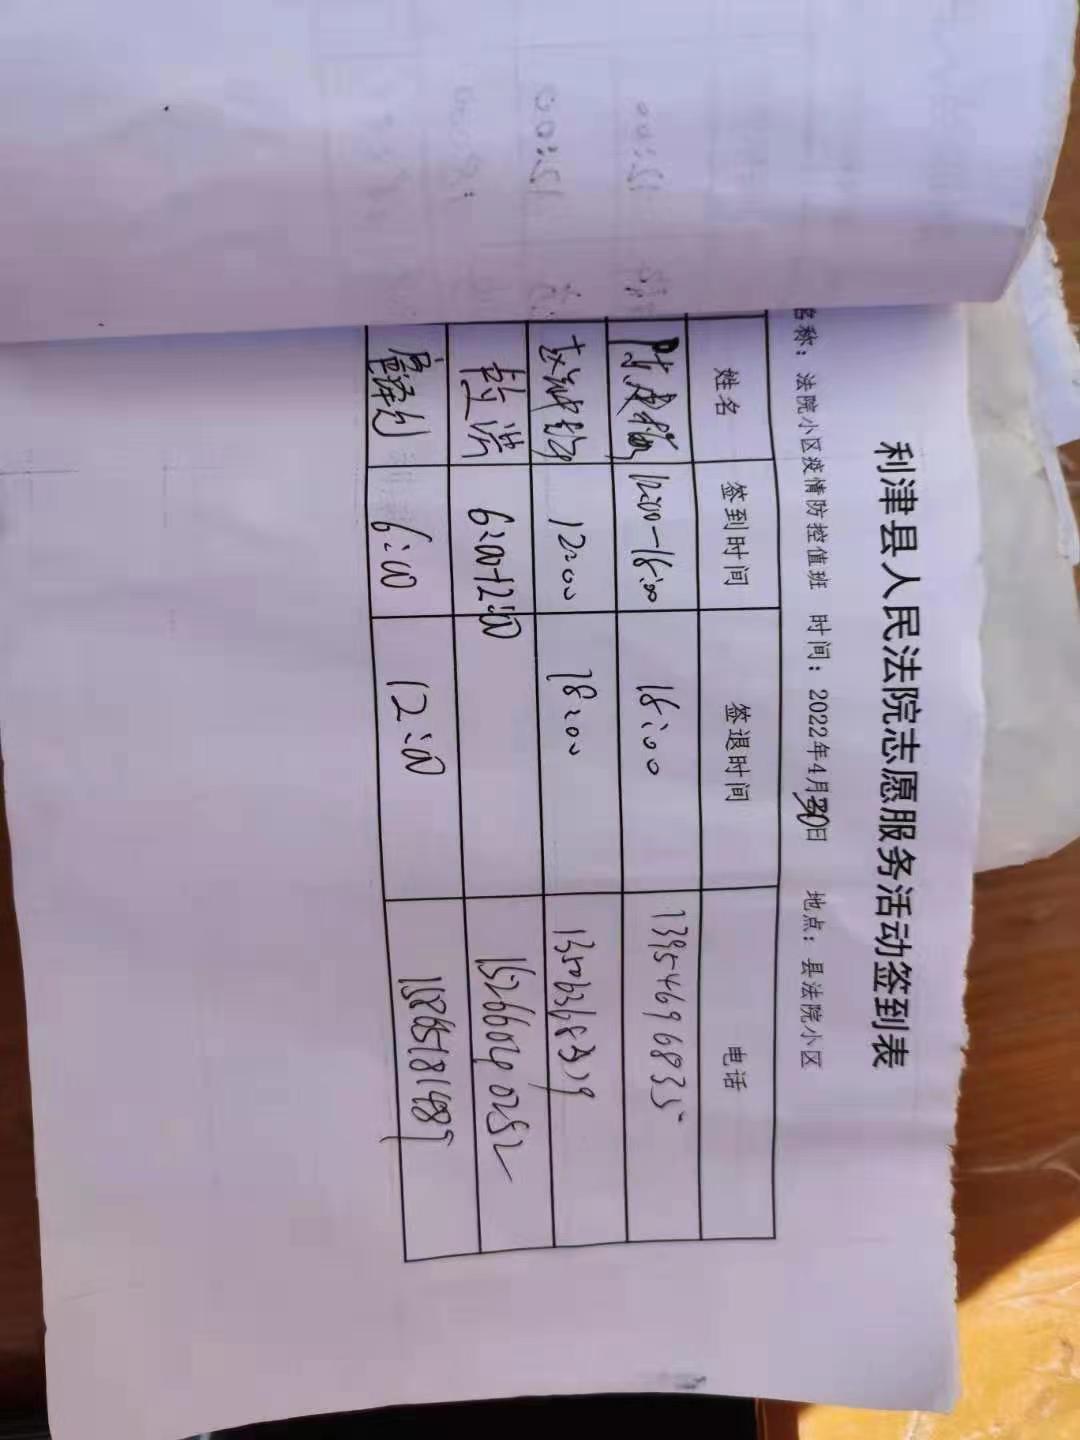 利津县人民法院志愿服务活动签到表
名称：法院小区疫情防控值班 时间：2022年4月30日 地点：县法院小区
姓名 签到时间 签退时间 电话
12:00-18:00 18:00 13954696835
12:00 18:00
韩浩 6:00-12:00 15266040252
6:00 12:00 15865181489